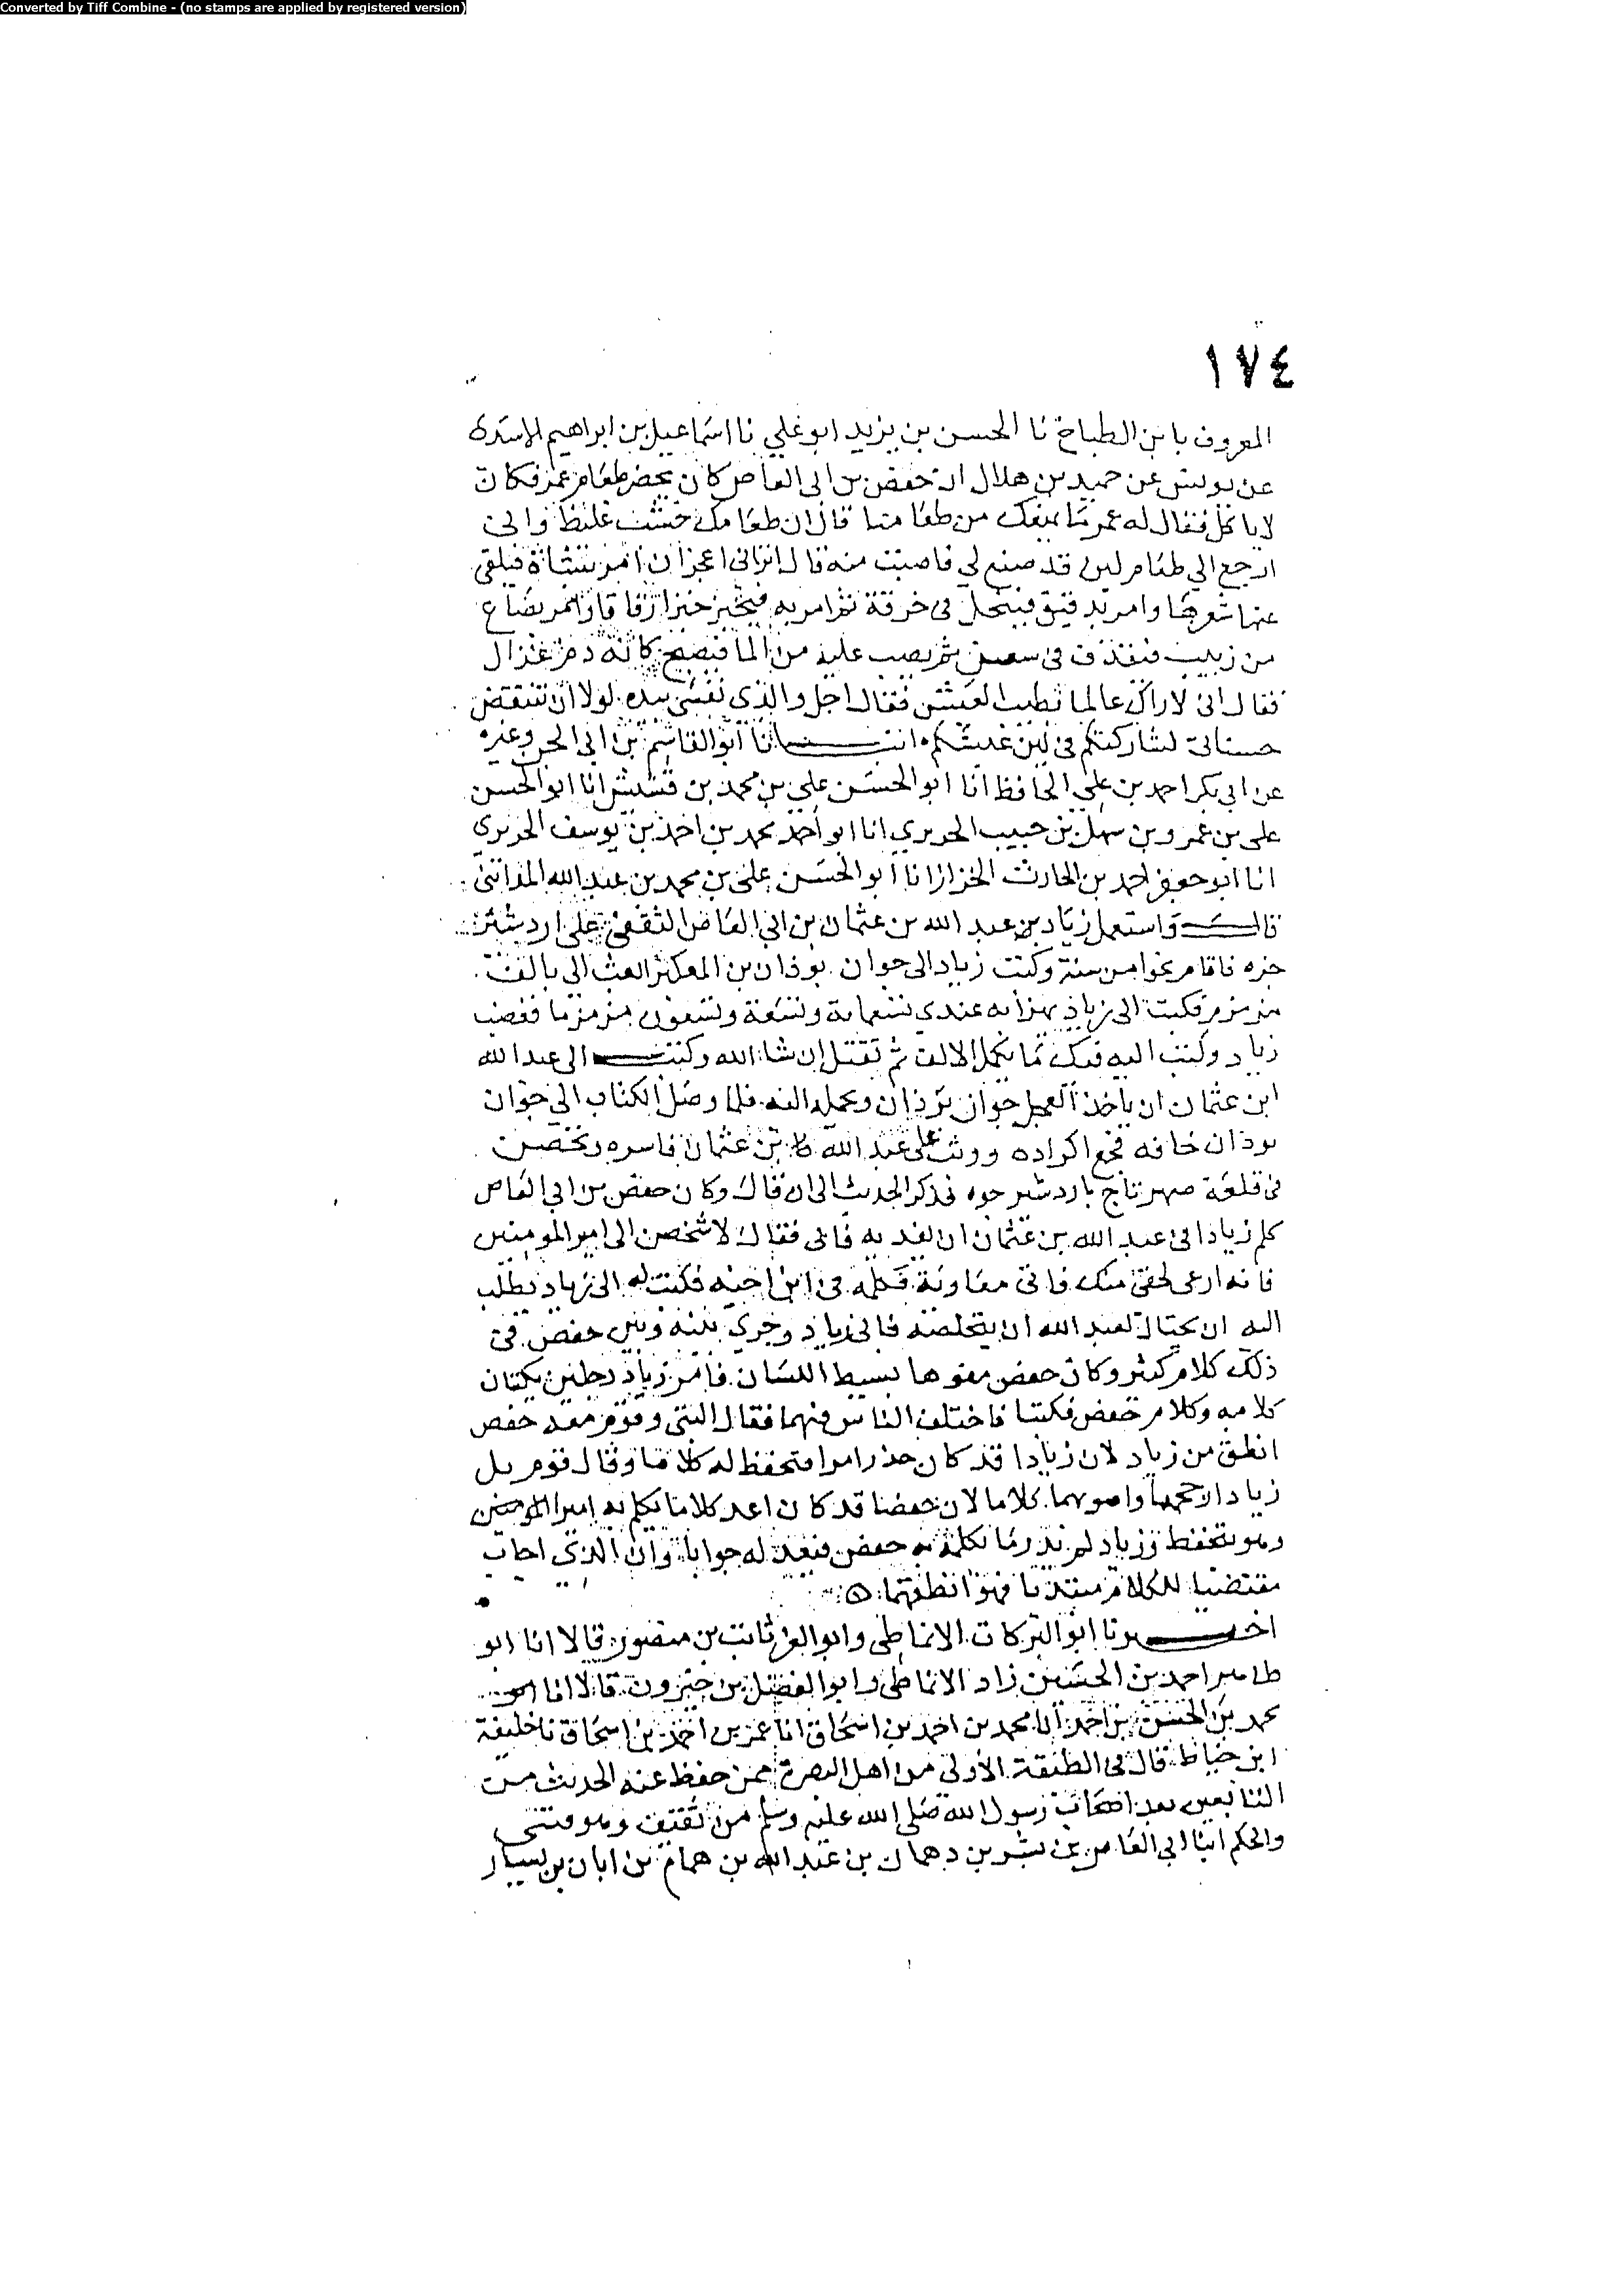 Converted by Tiff Combine - (no stamps are applied by registered version)
١٧٤
المعروف بابن الطباخ نا الحسن بن يزيد ابو علي نا اسماعيل بن ابراهيم الاسدي
عن يونس عن حميد بن هلال ان حفص بن ابي العاص كان يحضر طعام عمر فكان
لا ياكل فقال له عمر ما يمنعك من طعامنا قال ان طعامك خشب غليظ واني
ارجع الي طعام لين قد صنع لي فاصيب منه قال اتراني اعجز ان امر بشاة فيلقى
عنها شعرها وامر بدقيق فينخل في خرقة ثم امر به فيخبز خبزا رقاقا وامر بصاع
من زبيب فيقذف في سعن ثم يصب عليه من الما فيصبح كانه دم غزال
فقال اني لاراك عالما بطيب العيش فقال اجل والذي نفسي بيده لولا ان تنتقص
حسناتي لشاركتكم في لين عيشكم انبـــانا ابو القاسم بن ابي الجن وغيره
عن ابي بكر احمد بن علي الحافظ انا ابو الحسن علي بن محمد بن قشيش انا ابو الحسن
علي بن عمرو بن سهل بن حبيب الحريري انا ابو احمد محمد بن احمد بن يوسف الحريري
انا ابو جعفر احمد بن الحارث الخزاز انا ابو الحسن علي بن محمد بن عبد الله المدائني
قال واستعمل زياد بن عبد الله بن عثمان بن ابي العاص الثقفي على اردشير
خره فاقام نحوا من سنة وكتب زياد الى جوان بوذان بن المعكبر ابعث الى بالف
فكتب الى زياد يهزا به عندي تسعماية وتسعة وتسعون فغضب
زياد وكتب اليه فيك ما يكمل الالف ثم تقتل ان شا الله وكتب الى عبد الله
ابن عثمان ان ياخذ العجل جوان بوذان ويحمله اليه فلما وصل الكتاب الى جوان
بوذان خافه فجمع اكراده ووثب على عبد الله بن عثمان فاسره وتحصن
في قلعة صهرتاج باردشير خره فذكر الحديث الى ان قال وكان حفص بن ابي العاص
كلم زيادا في عبد الله بن عثمان ان يفديه فابى فقال لاشخصن الى امير المومنين
فانه ارعى لحقي منك فاتى معاوية فكلمه في ابن اخيه فكتب له الى زياد يطلب
اليه ان يحتال لعبد الله ان يتخلصه فابى زياد وجرى بينه وبين حفص في
ذلك كلام كثير وكان حفص مفوها بسيط اللسان فامر زياد رجلين يكتبان
كلامه وكلام حفص فكتبا فاختلف الناس فيهما فقال البتي وقوم معه حفص
انطق من زياد لان زيادا قد كان حذر امرا فتحفظ له كلاما وقال قوم بل
زياد ارجحهما واصوبهما كلاما لان حفصا قد كان اعد كلاما يكلم به امير المومنين
وهو يتحفظ وزياد لم يدر ما يكلمه به حفص فيعد له جوابا وان الذي اجاب
مقتضبا للكلام مبتديا فهو انطقهما
اخـــبرنا ابو البركات الانماطي وابو العز ثابت بن منصور قالا انا ابو
طاهر احمد بن الحسن زاد الانماطي وابو الفضل بن خيرون قالا انا ابو
محمد بن الحسن بن احمد انا محمد بن احمد بن اسحاق انا عمر بن احمد بن اسحاق نا خليفة
ابن خياط قال في الطبقة الاولى من اهل البصرة ممن حفظ عنه الحديث من
التابعين بعد اصحاب رسول الله صلى الله عليه وسلم من ثقيف وهو قسي
والحكم ابنا ابي العاص بن بشر بن دهمان بن عبد الله بن همام بن ابان بن يسار